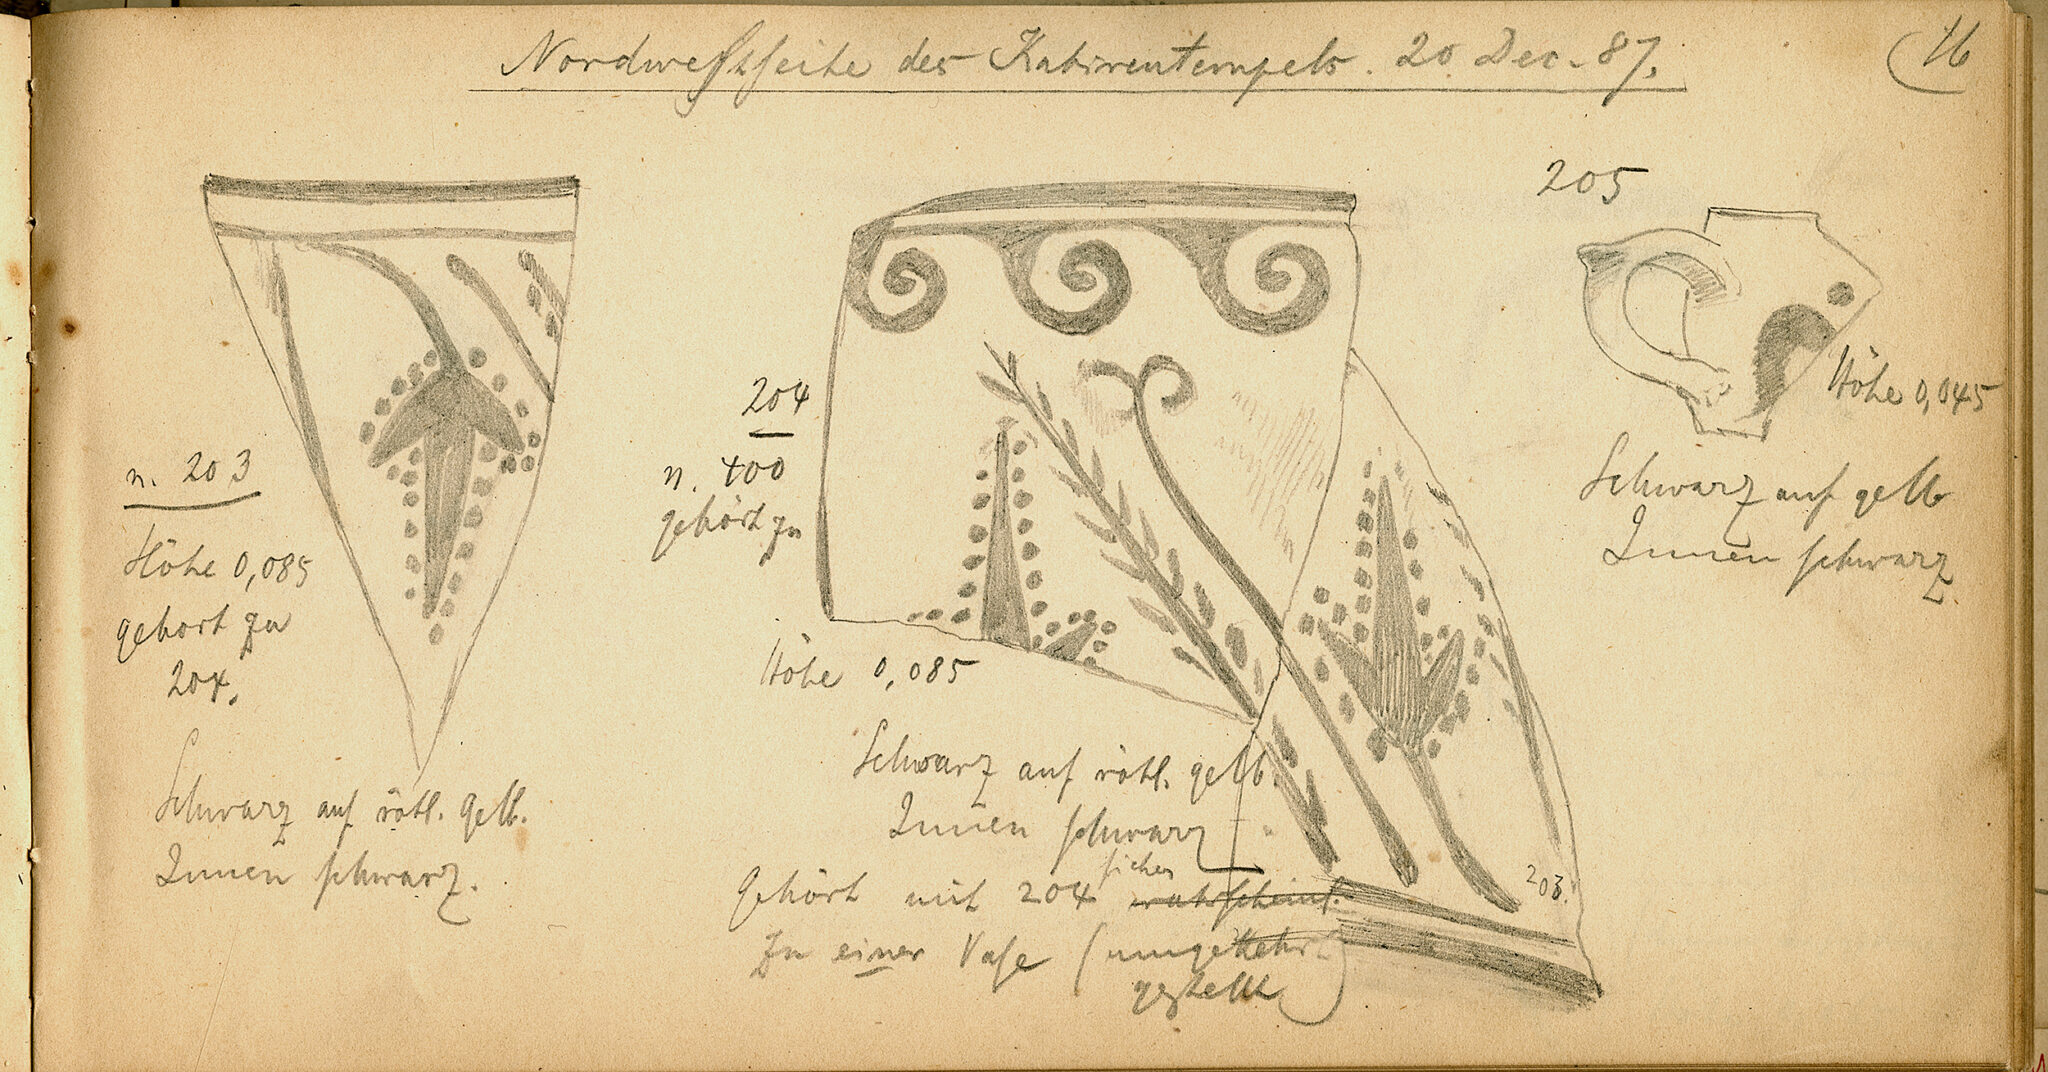 Nordwestseite des Kabirentempels. 20 Dec. 87.
16
n. 203
Höhe 0,085
gehört zu
204.
Schwarz auf rötl. gelb.
Innen schwarz.
204
n. 400
gehört zu
Höhe 0,085
Schwarz auf rötl. gelb.
Innen schwarz
sicher
Gehört mit 204 wahrscheinl.
zu einer Vase (umgekehrt
gestellt)
203.
205
Höhe 0,045
Schwarz auf gelb
Innen schwarz.